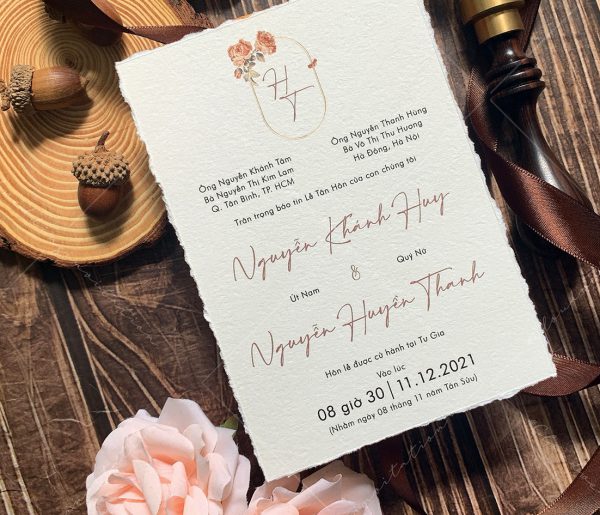 H
T
Ông Nguyễn Khánh Tâm
Bà Nguyễn Thị Kim Lam
Q. Tân Bình, TP. HCM
Ông Nguyễn Thanh Hùng
Bà Võ Thị Thu Hương
Hà Đông, Hà Nội
Trân trọng báo tin Lễ Tân Hôn của con chúng tôi
Nguyễn Khánh Huy
&
Út Nam
Quý Nữ
Nguyễn Huyền Thanh
Hôn lễ được cử hành tại Tư Gia
Vào lúc
08 giờ 30 | 11.12.2021
(Nhằm ngày 08 tháng 11 năm Tân Sửu)